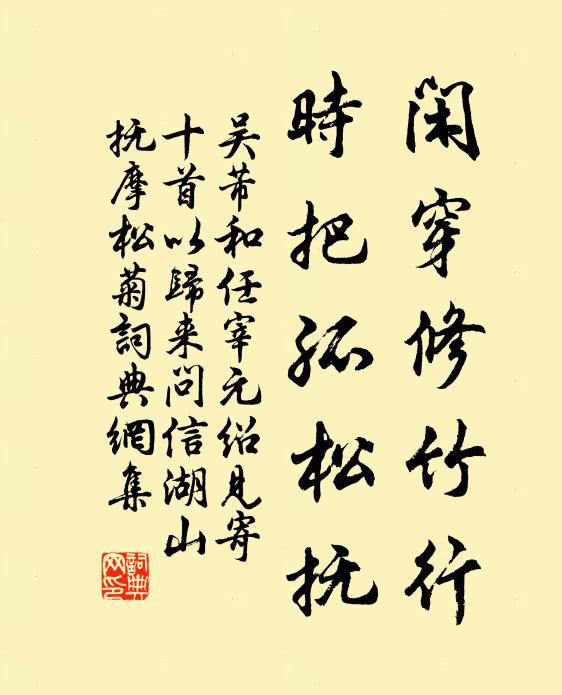 闲穿修竹行
时把孤松抚
吴芾和任宰元绍见寄
十首以歸来问信湖山
抚摩松菊詞典網集
詞典
网印